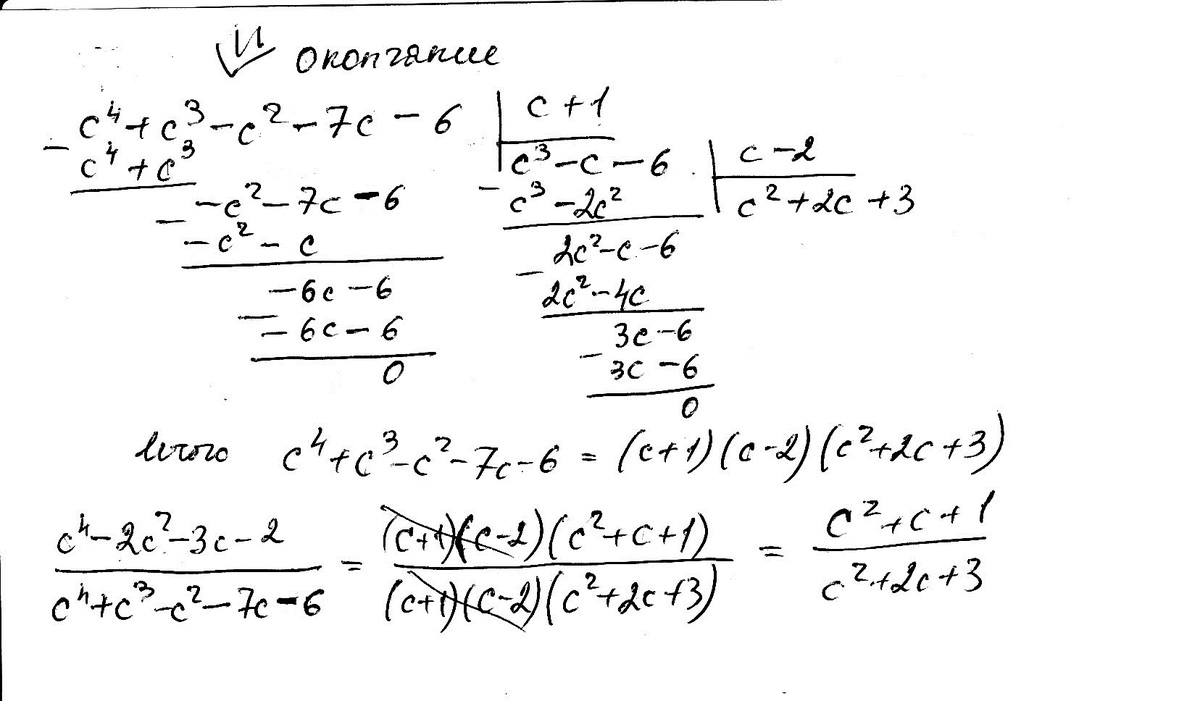 И окончание
c⁴+c³-c²-7c-6 | c+1
- c⁴+c³ | c³-c-6 | c-2
- -c²-7c-6 - c³-2c² | c²+2c+3
-c²-c 2c²-c-6
-6c-6 - 2c²-4c
- -6c-6 3c-6
0 - 3c-6
0
Итого c⁴+c³-c²-7c-6 = (c+1)(c-2)(c²+2c+3)
(c⁴-2c²-3c-2)/(c⁴+c³-c²-7c-6) = ((c+1)(c-2)(c²+c+1))/((c+1)(c-2)(c²+2c+3)) = (c²+c+1)/(c²+2c+3)